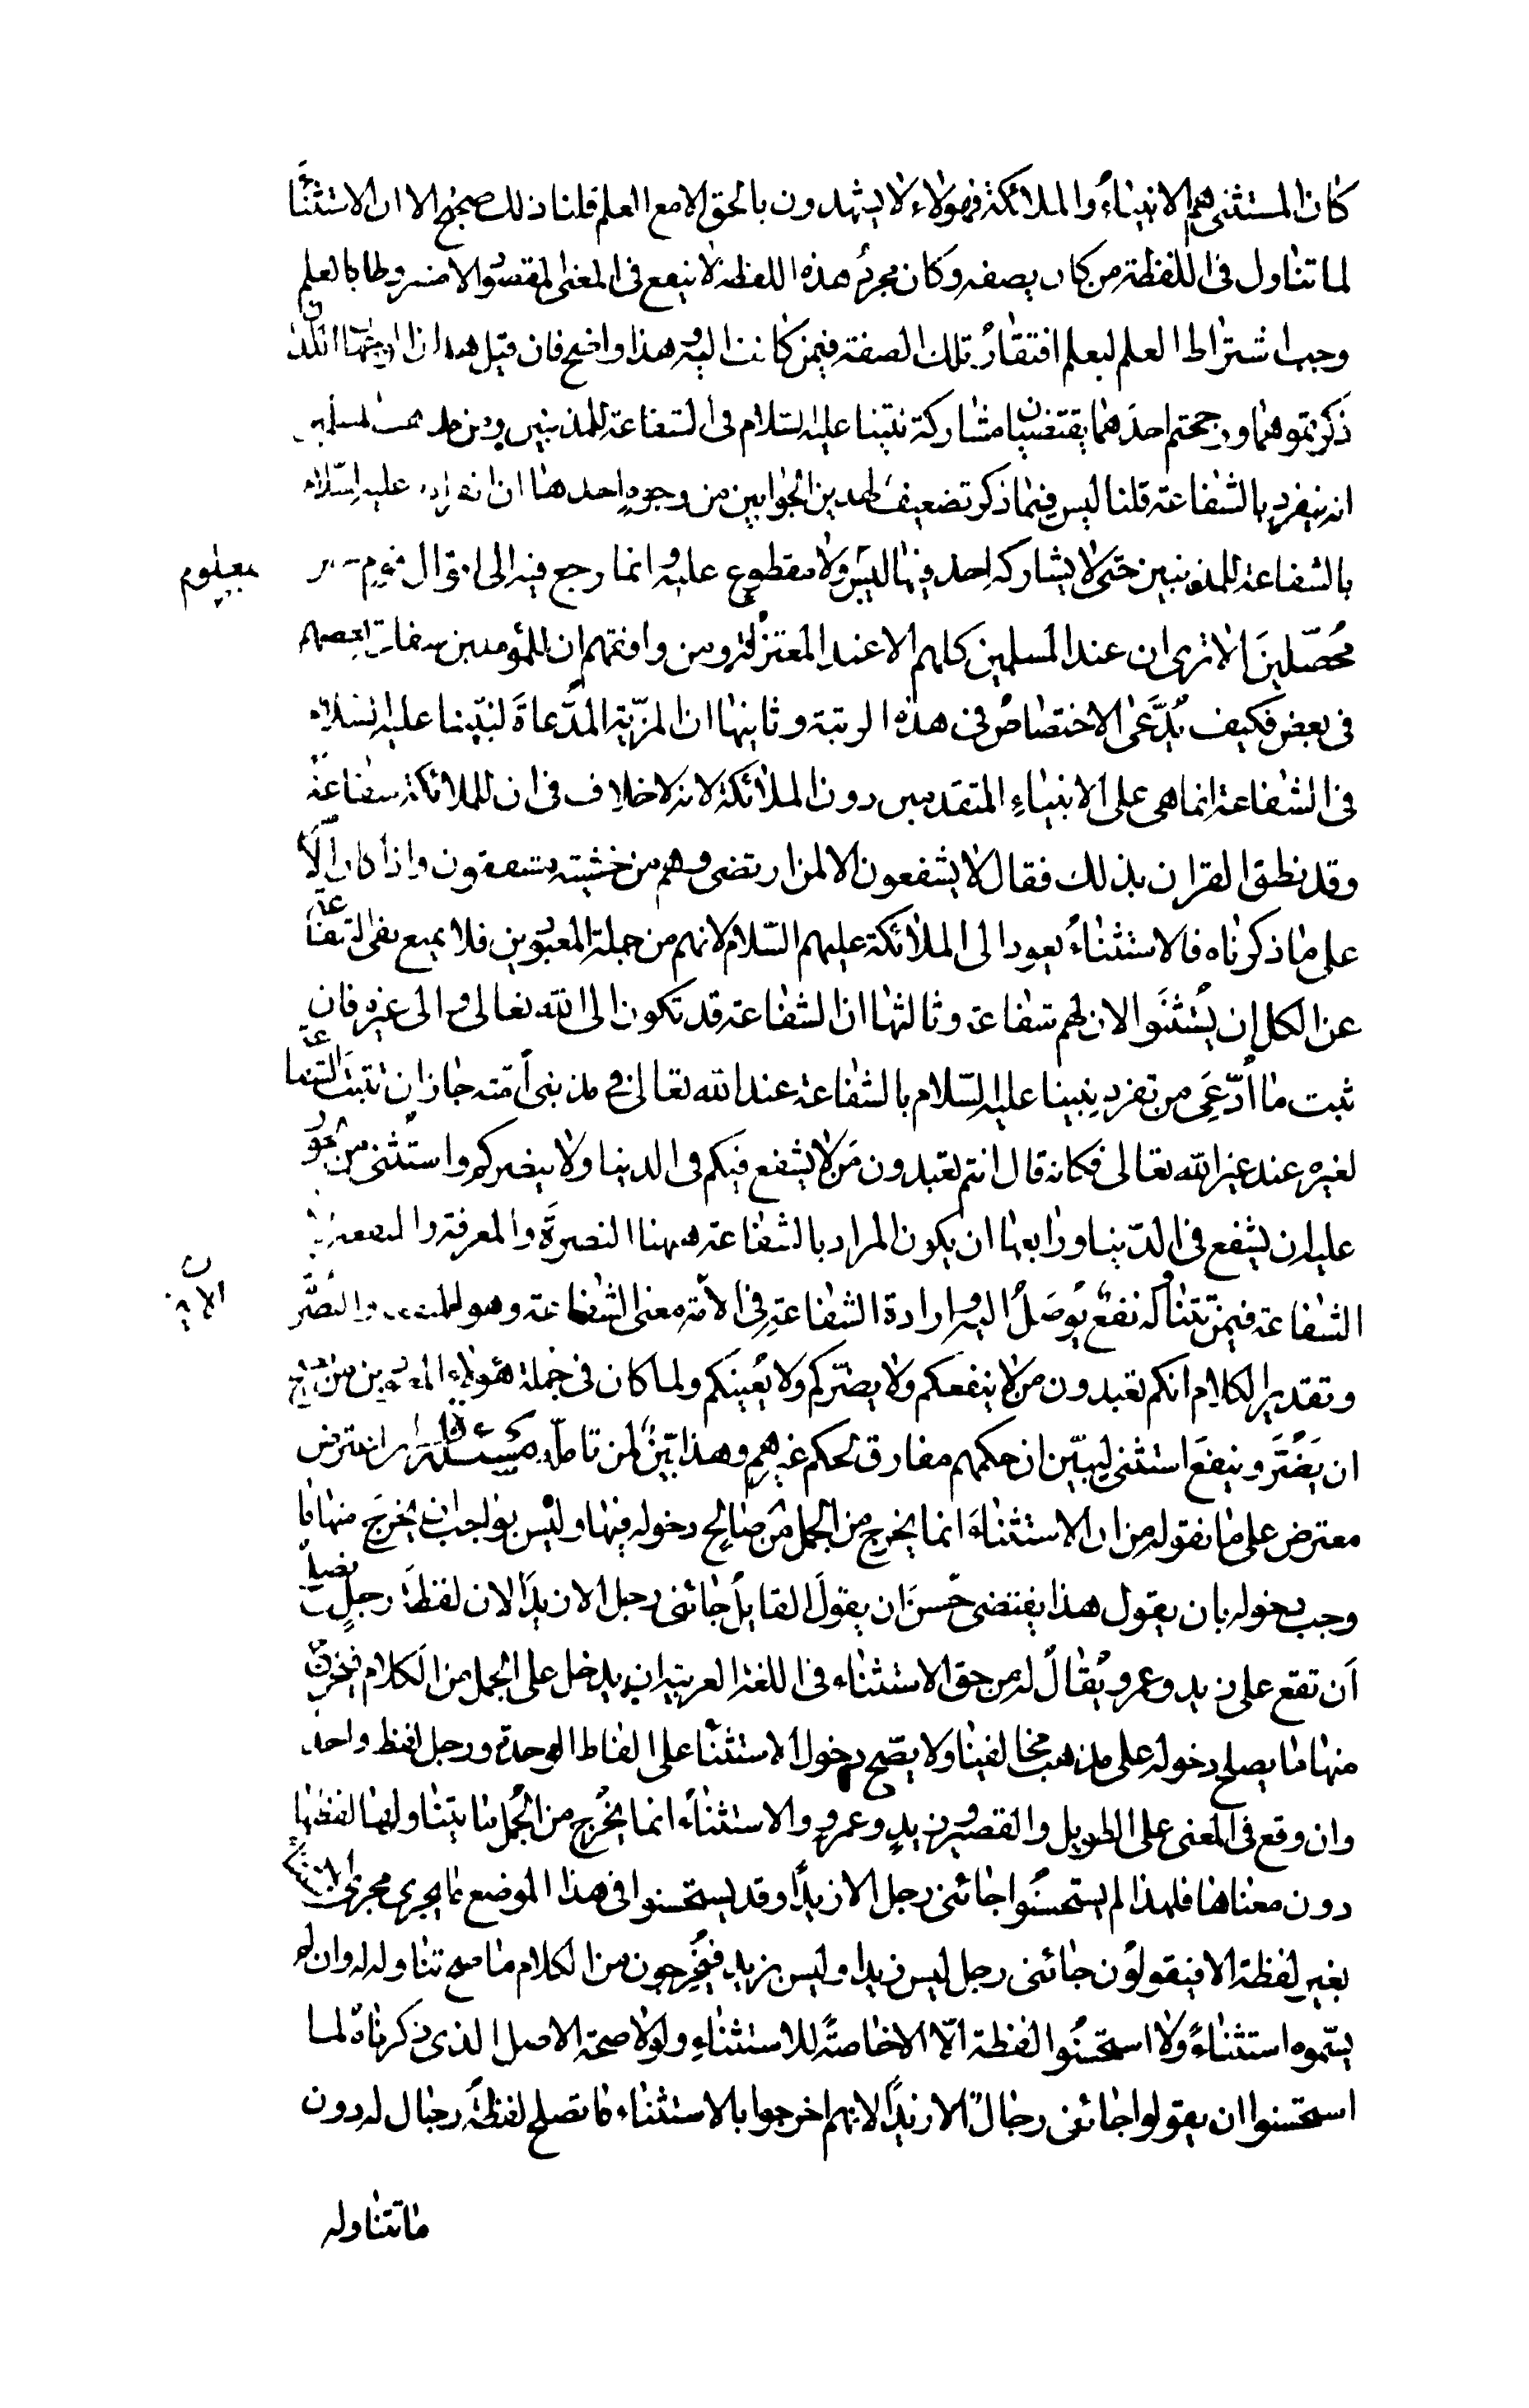 كان المستثنى هم الانبياء والملائكة فهولاء لا يشهدون بالحق الا مع العلم قلنا ذلك صحيح الا ان الاستثناء
لما تناول فى اللفظة من كان بصفة وكان مجرد هذه اللفظة لا ينفع فى المعنى المقصود الا مشروطا بالعلم
وجب اشتراط العلم ليعلم افتقار تلك الصفة فيمن كانت اليه وهذا واضح فان قيل هذان الوجهان اللذان
ذكرتموهما ورجحتم احدهما يقتضيان مشاركة نبينا عليه السلام فى الشفاعة للمذنبين ومن مذهب المسلمين
انه ينفرد بالشفاعة قلنا ليس فيما ذكر تضعيف لهذين الجوابين من وجوه احدها ان انفراده عليه السلام
بالشفاعة للمذنبين حتى لا يشاركه احد فيها ليس ولا مقطوع عليه وانما رجع فيه الى اقوال قوم غير
معلوم
محصلين الا ترى ان عند المسلمين كلهم الا عند المعتزلة ومن وافقهم ان للمؤمنين شفاعة بعضهم
فى بعض فكيف يدعى الاختصاص فى هذه الرتبة وثانيها ان المزية المدعاة لنبينا عليه السلام
فى الشفاعة انما هى على الانبياء المتقدمين دون الملائكة لانه لا خلاف فى ان للملائكة شفاعة
وقد نطق القران بذلك فقال لا يشفعون الا لمن ارتضى وهم من خشيته مشفقون واذا كان الامر
على ما ذكرناه فالاستثناء يعود الى الملائكة عليهم السلام لانهم من جملة المعبودين فلا يمنع نفى الشفاعة
عن الكل ان يستثنوا لان لهم شفاعة وثالثها ان الشفاعة قد تكون الى الله تعالى والى غيره فان
ثبت ما ادعى من تفرد نبينا عليه السلام بالشفاعة عند الله تعالى فى مذنبى امته جاز ان تثبت الشفاعة
لغيره عند غير الله تعالى فكانه قال انتم تعبدون من لا يشفع فيكم فى الدنيا ولا ينصركم واستثنى من يجوز
عليه ان يشفع فى الدنيا ورابعها ان يكون المراد بالشفاعة ههنا النصرة والمعرفة والمنفعة
الشفاعة فيمن تتناوله نفع يوصل اليه وارادة الشفاعة فى الامة معنى الشفاعة وهو النفع والنصر
وتقدير الكلام انكم تعبدون من لا ينفعكم ولا يضركم ولا يعينكم ولما كان فى جملة هؤلاء المعبودين من يصح
ان يضر وينفع استثنى ليبين ان حكمهم مفارق لحكم غيرهم وهذا بين لمن تامله مسئلة ان اعترض
معترض على ما نقوله من ان الاستثناء انما يخرج من الجمل من صالح دخوله فيها وليس بواجب ان يخرج منها ما
وجب دخوله بان يقول هذا يقتضى حسن ان يقول القايل جائنى رجل الا زيدا لان لفظة رجل تصلح
ان تقع على زيد وعمرو يقال له من حق الاستثناء فى اللغة العربية ان يدخل على الجمل من الكلام فيخرج
منها ما يصلح دخوله على مذهب مخالفينا ولا يصح دخول الاستثنا على الفاظ الوحدة ورجل لفظ واحد
وان وقع فى المعنى على الطويل والقصير وزيد وعمرو والاستثناء انما يخرج من الجمل ما يتناولها لفظها
دون معناها فلهذا لم يستحسنوا جائنى رجل الا زيدا وقد يستحسنوا فى هذا الموضع ما يجرى مجرى الاستثناء
بغير لفظة الا فيقولون جائنى رجل ليس زيدا وليس بزيد فيخرجون من الكلام ما صح تناوله له وان لم
يسموه استثناء ولا استحسنوا لفظة الا الا خاصة للاستثناء ولولا صحة الاصل الذى ذكرناه لما
استحسنوا ان يقولوا جائنى رجال الا زيدا لانهم اخرجوا بالاستثناء ما تصلح لفظة رجال له دون
ما تتناوله